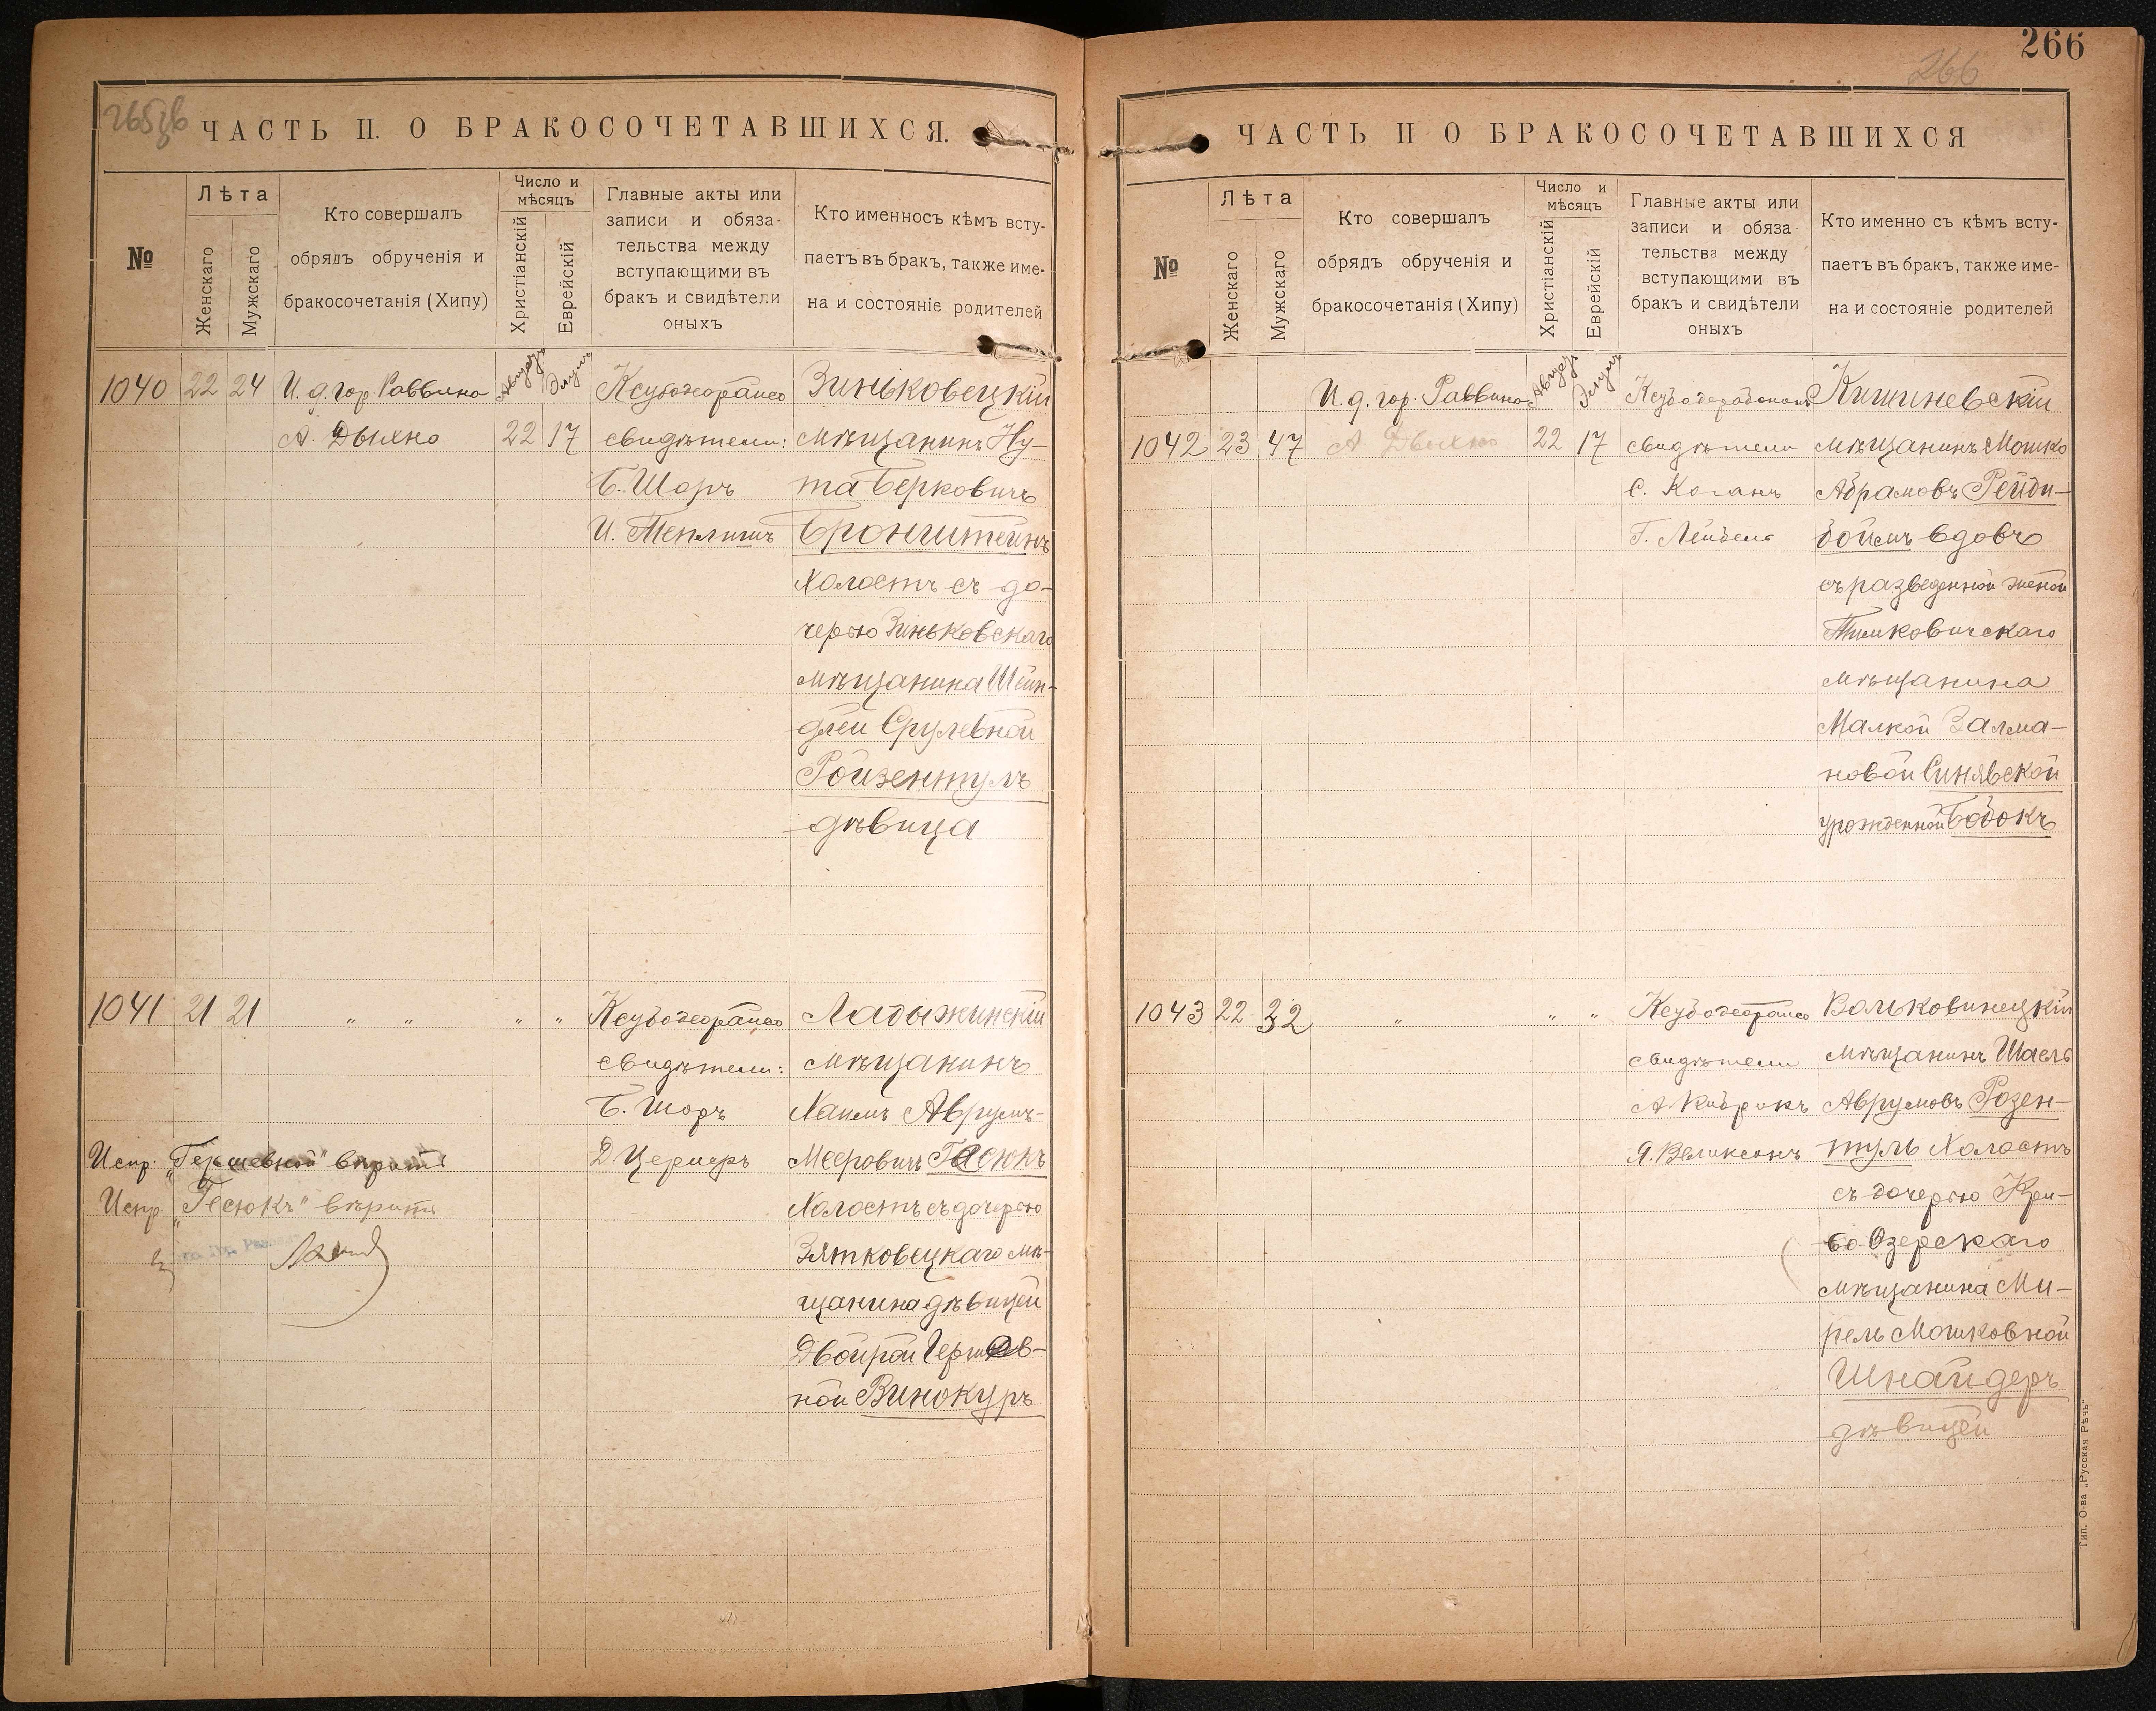 ЧАСТЬ II. О БРАКОСОЧЕТАВШИХСЯ.
№
Лѣта
Женскаго
Мужскаго
Кто совершалъ
обрядъ обрученія и
бракосочетанія (Хипу)
Число и
мѣсяцъ
Христіанскій
Еврейскій
Главные акты или
записи и обяза-
тельства между
вступающими въ
бракъ и свидѣтели
оныхъ
Кто именносъ кѣмъ всту-
паетъ въ бракъ, также име-
на и состояніе родителей
1040
22
24
И. д. гор. Раввина
А. Дыхно
Августъ
22
Элулъ
17
свидѣтели:
Б. Шоръ
Зиньковецкій
мѣщанинъ Ну-
та Берковичъ
Бронштейнъ
Холостъ съ до-
черью Зиньковскаго
мѣщанина Шейн-
длей Срулевной
Ройзентулъ
дѣвица
1041
21
21
" "
"
"
свидѣтели:
Б. Шоръ
Д. Цермеръ
Ладыжинскій
мѣщанинъ
Хаимъ Аврумъ-
Мееровичъ Гесюкъ
Холостъ съ дочерью
Зятковецкаго мѣ-
щанина дѣвицей
Двойрой Гершев-
ной Винокуръ
Испр. „Гершевной" вѣрить
Испр. „Гесюкъ" вѣрить
266
266
ЧАСТЬ II О БРАКОСОЧЕТАВШИХСЯ
№
Лѣта
Женскаго
Мужскаго
Кто совершалъ
обрядъ обрученія и
бракосочетанія (Хипу)
Число и
мѣсяцъ
Христіанскій
Еврейскій
Главные акты или
записи и обяза
тельства между
вступающими въ
бракъ и свидѣтели
оныхъ
Кто именно съ кѣмъ всту-
паетъ въ бракъ, также име-
на и состояніе родителей
1042
23
47
И. д. гор. Раввина
А. Дыхно
Августъ
22
Элулъ
17
свидѣтели
С. Коганъ
Г. Лейбель
Кишиневскій
мѣщанинъ Мошко
Абрамовъ Рейди-
боймъ вдовъ
съ разведенной женой
Тимковичскаго
мѣщанина
Малкой Залма-
новой Синявской
урожденной Бодокъ
1043
22
32
"
"
"
свидѣтели
А. Кибрикъ
Я. Великсонъ
Вольковинецкій
мѣщанинъ Шаель
Аврумовъ Розен-
туль Холостъ
съ дочерью Кри-
во-Озерскаго
мѣщанина Ми-
рель Мошковной
Шнайдеръ
дѣвицей
Тип. О-ва „Русская Рѣчь"